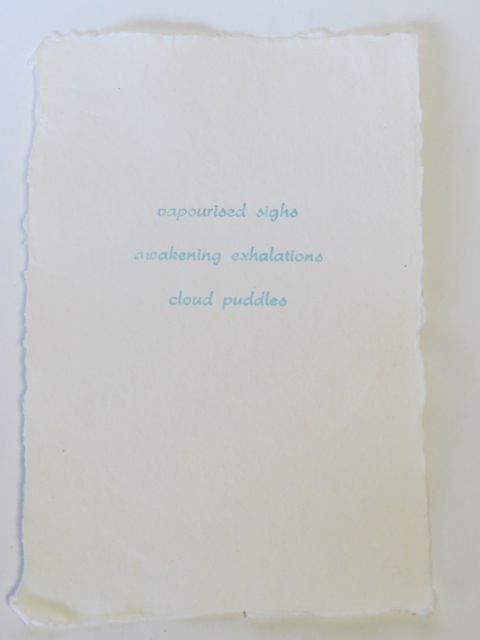 vapourised sighs
awakening exhalations
cloud puddles